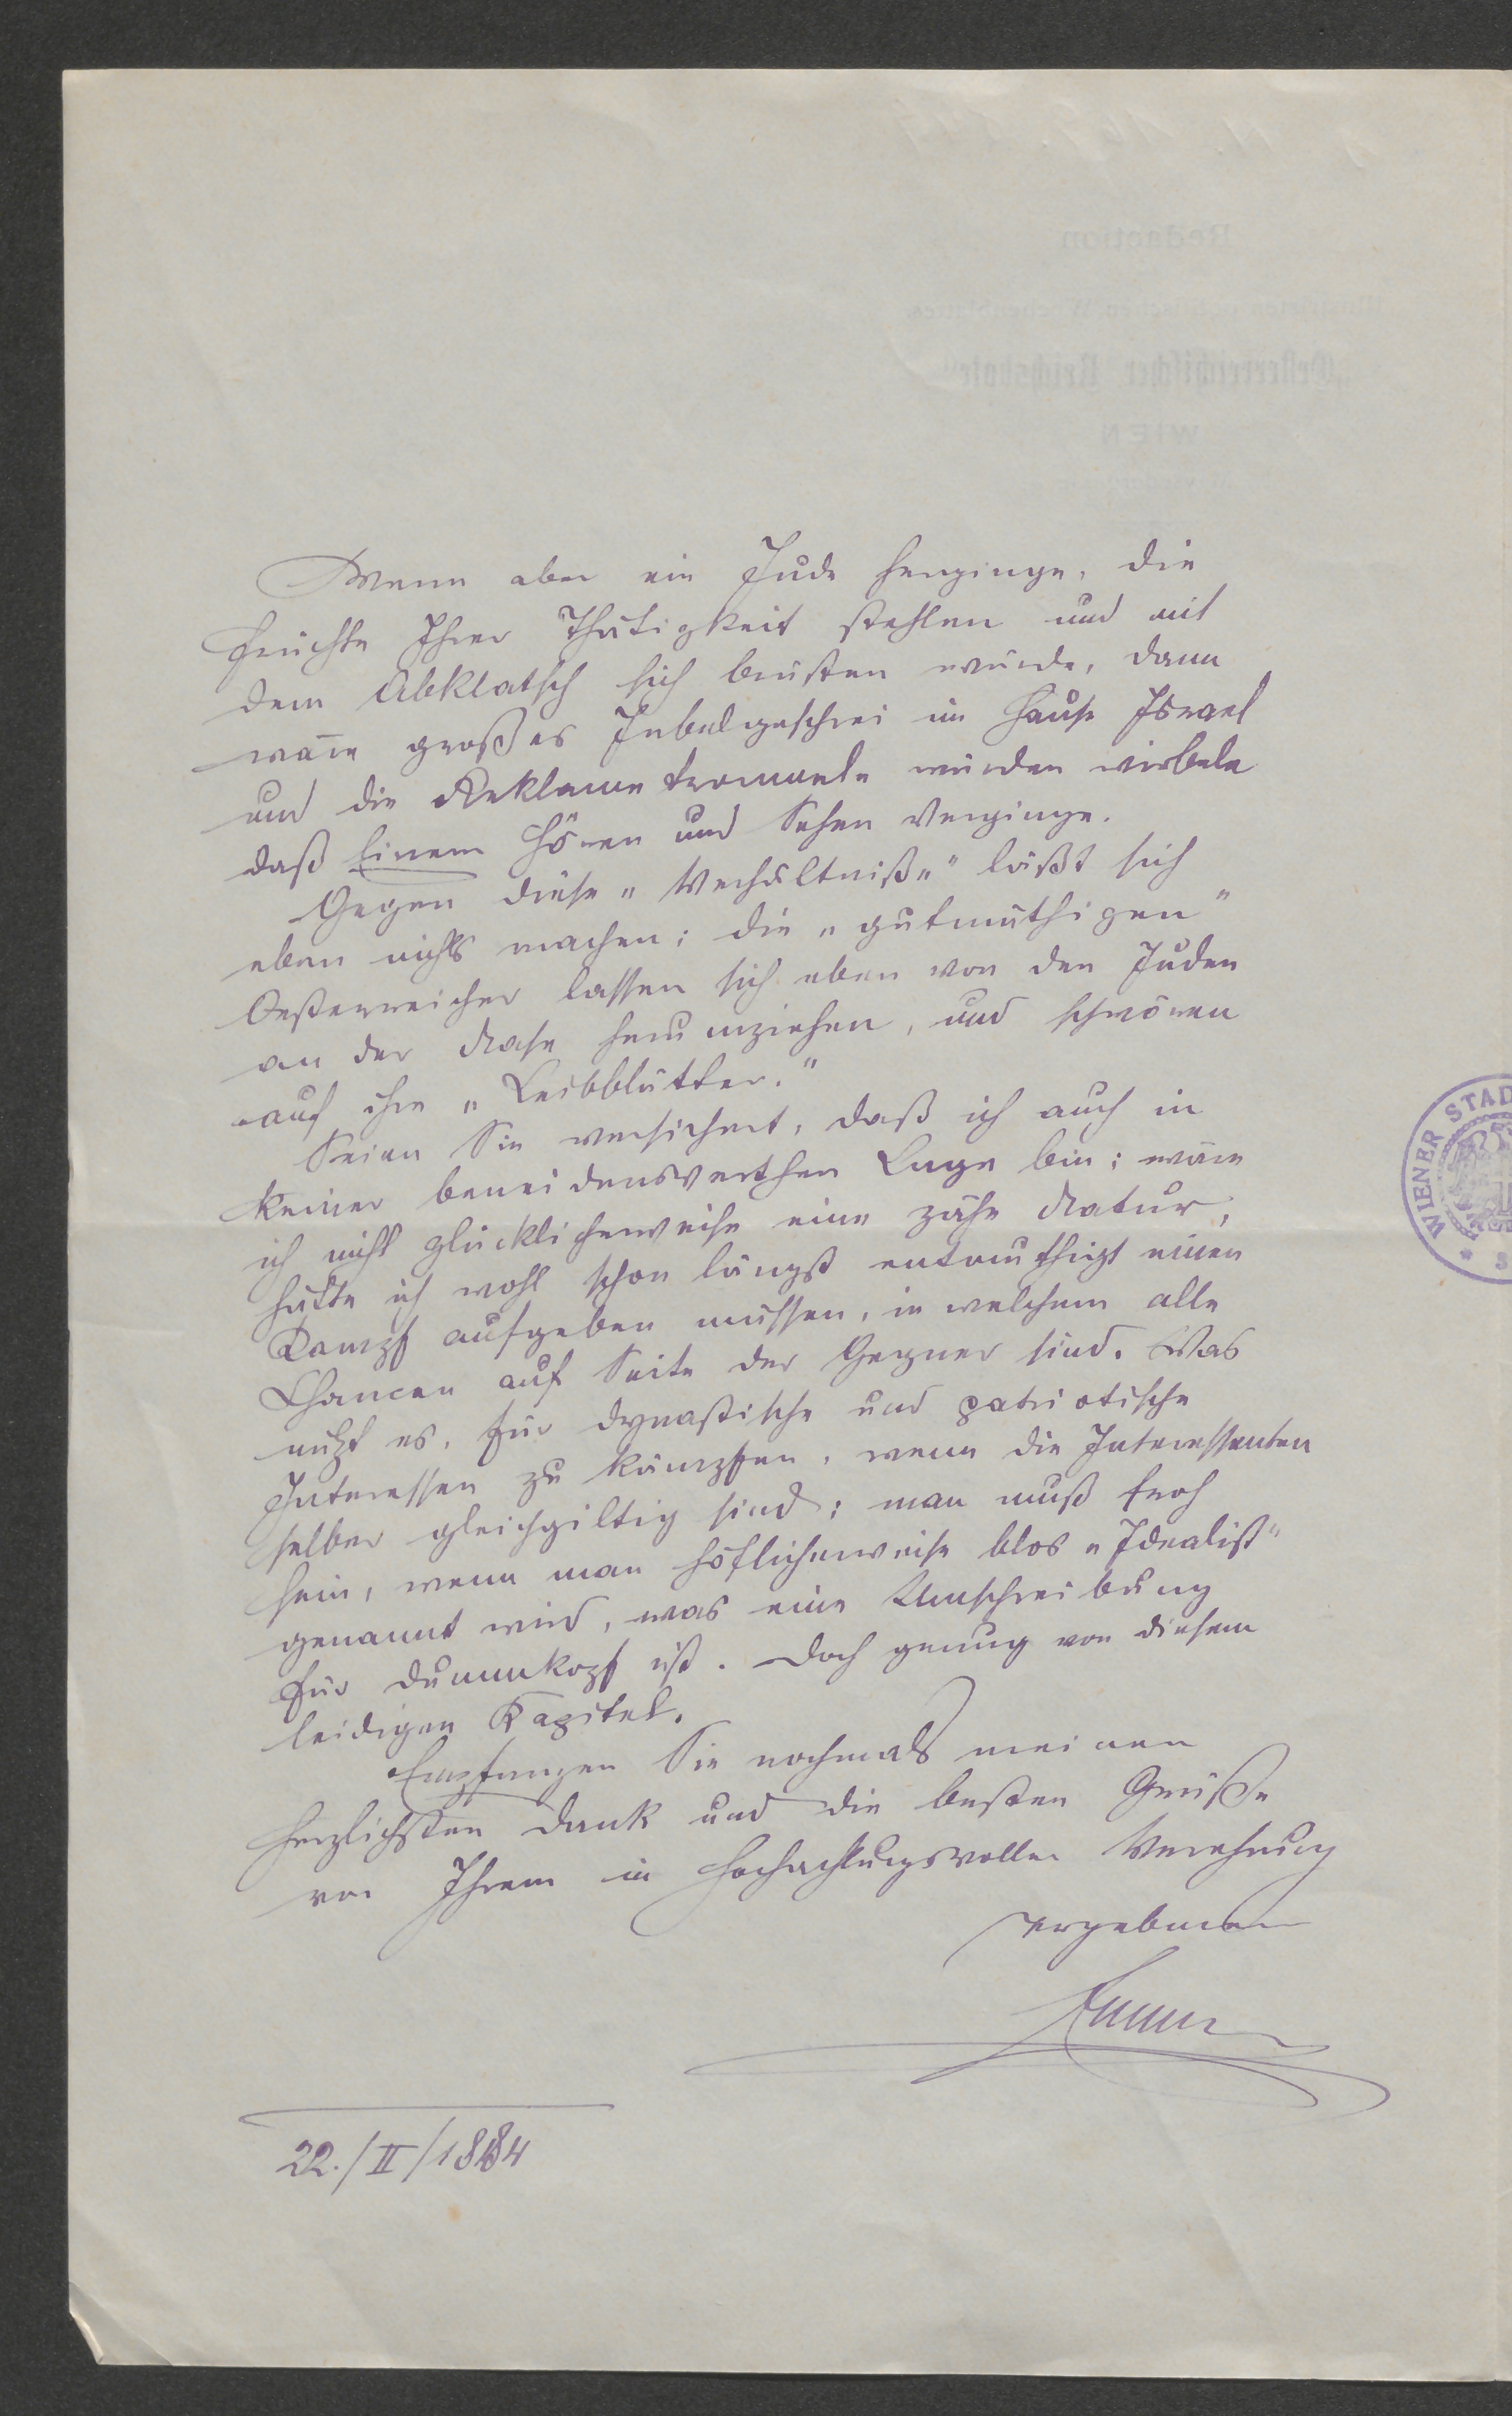 Wenn aber ein Jude herginge, die
Früchte Ihrer Thätigkeit stehlen und mit
dem Abklatsch sich brüsten würde, dann
wäre großes Jubelgeschrei im Hause Israel
und die Reklametrommeln würden wirbeln
daß Einem Hören und Sehen verginge.
Gegen diese „Verhältniße" läßt sich
eben nichts machen; die „gutmüthigen"
Oesterreicher lassen sich eben von den Juden
an der Nase herumziehen, und schwören
auf ihre „Leibblätter."
Seien Sie versichert, daß ich auch in
keiner beneidenswerthen Lage bin; wäre
ich nicht glücklicherweise eine zähe Natur,
hätte ich wohl schon längst entmuthigt einen
Kampf aufgeben müssen, in welchem alle
Chancen auf Seite der Gegner sind. Was
nützt es, für dynastische und patriotische
Interessen zu kämpfen, wenn die Interessenten
selber gleichgiltig sind; man muß froh
sein, wenn man höflicherweise blos „Idealist"
genannt wird, was eine Umschreibung
für Dummkopf ist. Doch genug von diesem
leidigen Kapitel.
Empfangen Sie nochmals meinen
herzlichsten Dank und die besten Grüße
von Ihrem in hochachtungsvoller Verehrung
ergebenen
22./II/1884
WIENER STAD
Redaction
„Oesterreichischer Reichsbote"
WIEN